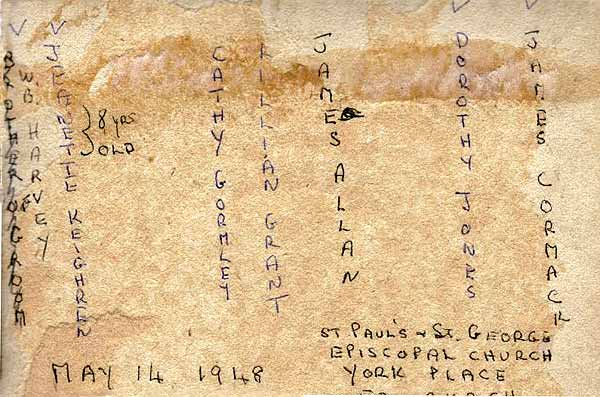 BROTHER OF GROOM
WB. HARVEY
JEANETTE KEIGHREN
8 YRS
OLD
CATHY GORMLEY
LILLIAN GRANT
JAMES ALLAN
DOROTHY JONES
JAMES CORMACK
ST PAUL'S + ST. GEORGE
EPISCOPAL CHURCH
YORK PLACE
MAY 14 1948